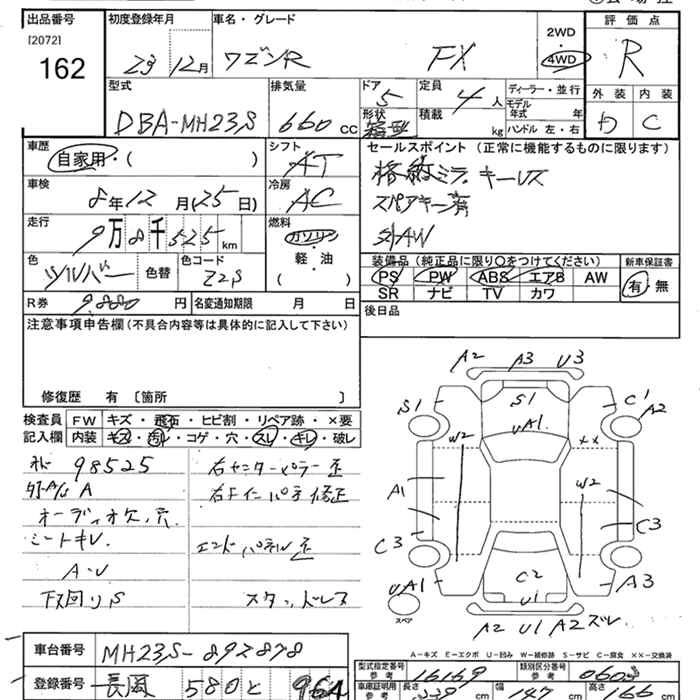 出品番号 初度登録年月 車名・グレード 2WD 評価点
[2072] 162 23 12月 ワゴンR FX 4WD R
型式 排気量 ドア 5 定員 4人 ディーラー・並行 外装 内装
DBA-MH23S 660cc 形状 積載 kg モデル年式 年 C
ハンドル 左・右
車歴 シフト セールスポイント (正常に機能するものに限ります)
自家用・( ) AT 格納ミラ キーレス
車検 冷房 スペアキー済
8年12月(25日) AC
走行 燃料 社AW
9万8千525km ガソリン・
軽・油
( )
装備品 (純正品に限り○をつけてください) 新車保証書
色 シルバー 色替 色コード Z2S
PS PW ABS エアB AW 有・無
SR ナビ TV カワ
R券 9,880円 名変通知期限 月 日 後日品
注意事項申告欄(不具合内容等は具体的に記入して下さい)
修復歴 有 〔箇所 〕
検査員 FW キズ・飛石・ヒビ割・リペア跡・×要
記入欄 内装 キズ・汚れ・コゲ・穴・スレ・キレ・破レ
98525 右センターピラー歪
A 右Fインパネ修正
オーディオ欠、穴
シートキレ エンドパネル歪
A・U
下回りS スタッドレス
A2 A3 U3
S1 S1 C1 A2
UA1
W2 ××
A1 W2
C3 C3
C2
UA1 U1 A3
スペア
A2 U1 A2 ズレ
A-キズ E-エクボ U-凹み W-補修跡 S-サビ C-腐食 ××-交換済
車台番号 MH23S-892878
型式指定番号 参考 16169 類別区分番号 参考 0603
登録番号 580 と 964
車庫証明用 参考 長さ 339cm 幅 147cm 高さ 166cm